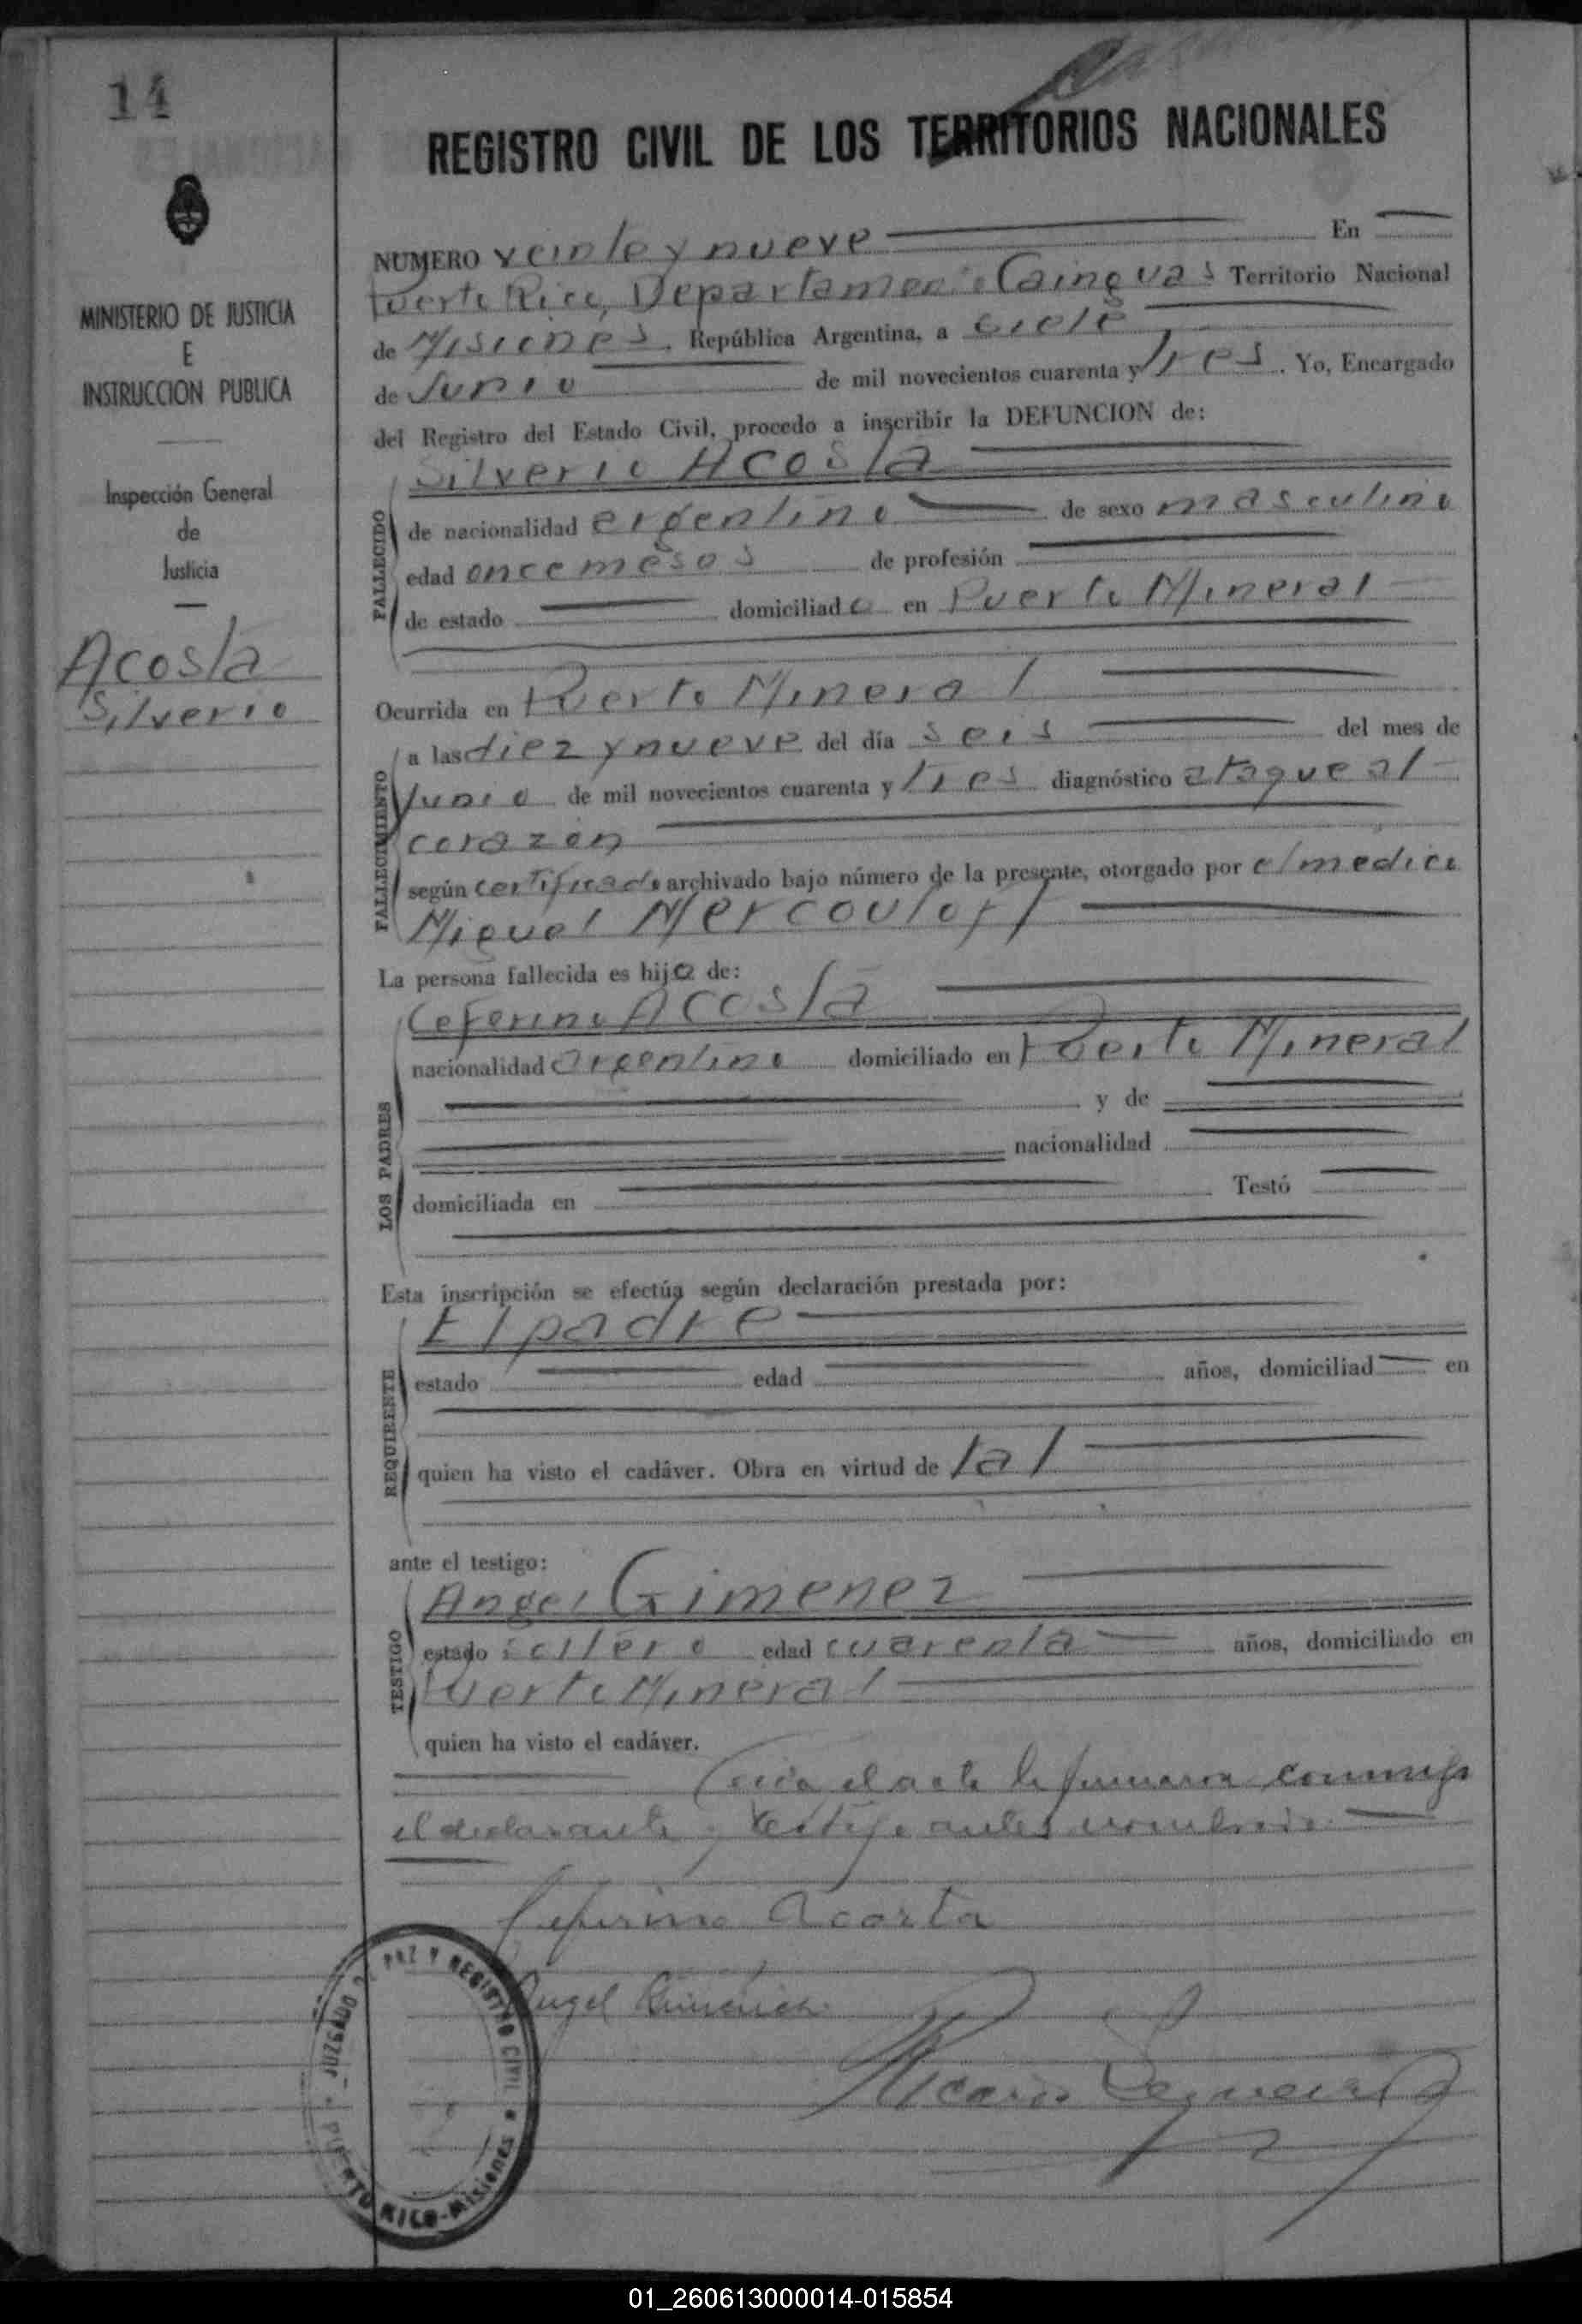 14
REGISTRO CIVIL DE LOS TERRITORIOS NACIONALES
MINISTERIO DE JUSTICIA
E
INSTRUCCION PUBLICA
Inspección General
de
Justicia
Acosta
Silverio
NUMERO veinte y nueve En
Puerto Rico, Departamento Cainguas Territorio Nacional
de Misiones, República Argentina, a siete
de Junio de mil novecientos cuarenta y tres. Yo, Encargado
del Registro del Estado Civil, procedo a inscribir la DEFUNCION de:
Silverio Acosta
FALLECIDO
de nacionalidad argentino de sexo masculino
edad once meses de profesión
de estado domiciliado en Puerto Mineral
Ocurrida en Puerto Mineral
FALLECIMIENTO
a las diez y nueve del día seis del mes de
Junio de mil novecientos cuarenta y tres diagnóstico ataque al
corazón
según certificado archivado bajo número de la presente, otorgado por el medico
Miguel Mercouloff
La persona fallecida es hijo de:
Ceferino Acosta
LOS PADRES
nacionalidad argentino domiciliado en Puerto Mineral
y de
nacionalidad
domiciliada en Testó
Esta inscripción se efectúa según declaración prestada por:
El padre
REQUIRENTE
estado edad años, domiciliad en
quien ha visto el cadáver. Obra en virtud de tal
ante el testigo:
Angel Gimenez
TESTIGO
estado soltero edad cuarenta años, domiciliado en
Puerto Mineral
quien ha visto el cadáver.
el acta la firmaron conmigo
el declarante y testigo antes nombrado.
Ceferino Acosta
Angel
JUZGADO DE PAZ Y REGISTRO CIVIL
PUERTO RICO - Misiones
01_260613000014-015854